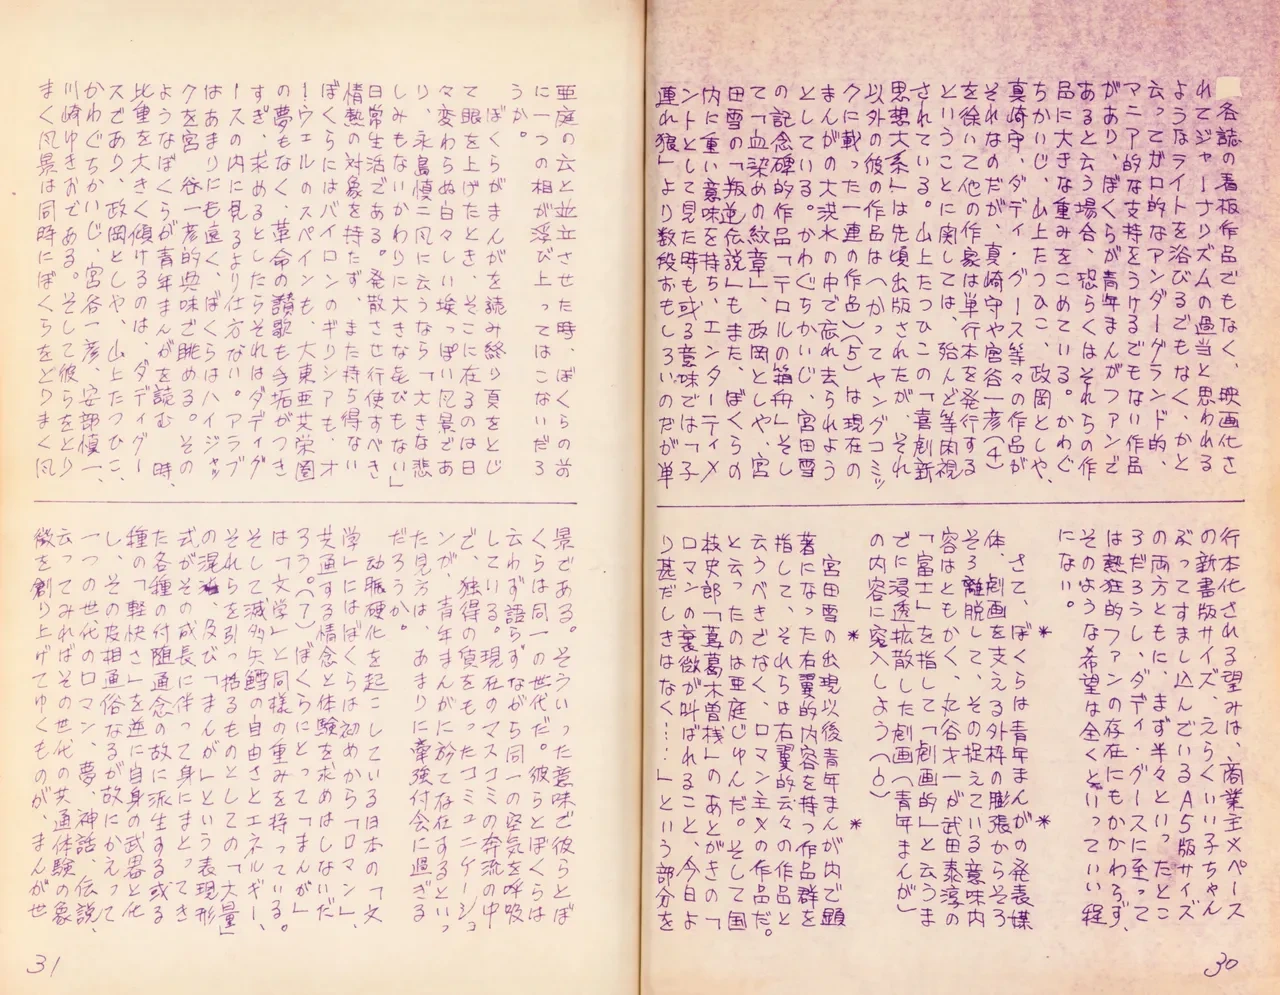 各誌の看板作品でもなく、映画化さ
れてジャーナリズムの過当と思われる
ようなライトを浴びるでもなく、かと
云ってガロ的なアンダーグランド的、
マニア的な支持をうけるでもない作品
があり、ぼくらが青年まんがファンで
あると云う場合、恐らくはそれらの作
品に大きな重みをこめている。かわぐ
ちかいじ、山上たつひこ、政岡としや、
真崎守、ダディ・グース等々の作品が
それなのだが、真崎守や宮谷一彦(4)
を徐いて他の作家は単行本を発行する
ということに関しては、殆んど等閑視
されている。山上たつひこの「喜劇新
思想大系」は先頃出版されたが、それ
以外の彼の作品はへかってヤングコミッ
クに載った一連の作品)(5)は現在の
まんがの大洪水の中で忘れ去られよう
としている。かわぐちかいじ、宮田雪
の記念碑的作品「テロルの箱舟」そし
て「血染めの紋章」、政岡としや、宮
田雪の「叛逆伝説」もまた、ぼくらの
内に重い意味を持ち、エンターティメ
ントとして見た時も或る意味では「子
連れ狼」より数段おもしろいのだが単
行本化される望みは、商業主メペース
の新書版サイズ、えらくいい子ちゃん
ぶってすまし込んでいるA5版サイズ
の両方ともに、まず半々といったとこ
ろだろうし、ダディ・グースに至って
は熱狂的ファンの存在にもかかわらず、
そのような希望は全くといっていい程
にない。
* *
さて、ぼくらは青年まんがの発表媒
体、劇画を支える外枠の膨張からそろ
そろ離脱して、その捉えている意味内
容はともかく、丸谷才一が武田泰淳の
「富士」を指して「劇画的」と云うま
でに浸透拡散した劇画(青年まんが)
の内容に容入しよう(6)
* *
宮田雪の出現以後青年まんが内で顕
著になった右翼的内容を持つ作品群を
指して、それらは右翼的云々の作品と
云うべきでなく、ロマン主メの作品だ。
と云ったのは亜庭じゅんだ。そして国
枝史郎「蔦葛木曽桟」のあとがきの「
ロマンの衰微が叫ばれること、今日よ
り甚だしきはなく……」という部分を
30
亜庭の云と並立させた時、ぼくらの前
に一つの相が浮び上ってはこないだろ
うか。
ぼくらがまんがを読み終り頁をとじ
て眼を上げたとき、そこに在るのは日
々変わらぬ白々しい埃っぽい風景であ
り、永島慎二風に云うなら「大きな悲
しみもないかわりに大きな㐂びもない」
日常生活である。発散させ行使すべき
情熱の対象を持たず、また持ち得ない
ぼくらにはバイロンのギリシアも、オ
ーウェルのスペインも、大東亜共栄圏
の夢もなく、革命の讃歌も手垢がつき
すぎ、求めるとしたらそれはダディグ
ースの内に見るより仕方ない。アラブ
はあまりにも遠く、ぼくらはハイジャッ
クを宮谷一彦的興味で眺める。その
ようなぼくらが青年まんがを読む時、
比重を大きく傾けるのは、ダディグー
スであり、政岡としや、山上たつひこ、
かわぐちかいじ、宮谷一彦、安部慎一、
川崎ゆきおである。そして彼らをとり
まく風景は同時にぼくらをとりまく風
景である。そういった意味で彼らとぼ
くらは同一の世代だ。彼らとぼくらは
云わず語らずながら同一の空気を呼吸
している。現在のマスコミの奔流の中
で、独得の値をもったコミュニケーショ
ンが、青年まんがに於て存在するといっ
た見方は、あまりに牽強付会に過ぎる
だろうか。
動脈硬化を起こしている日本の「文
学」にはぼくらは初めから「ロマン」、
共通する情念と体験を求めはしないだ
ろう。(7)ぼくらにとって「まんが」
は「文学」と同様の重みを持っている。
そして滅多矢鱈の自由さとエネルギー、
それらを引っ括るものとしての「大量」
の混淆、及び「まんが」という表現形
式がその成長に伴って身にまとってき
た各種の付随通念の故に派生する或る
種の「軽快さ」を逆に自身の武器と化
し、その皮相通俗なるが故にかえって
一つの世代のロマン、夢、神話、伝説、
云ってみればその世代の共通体験の象
徴を創り上げてゆくものが、まんがせ
31